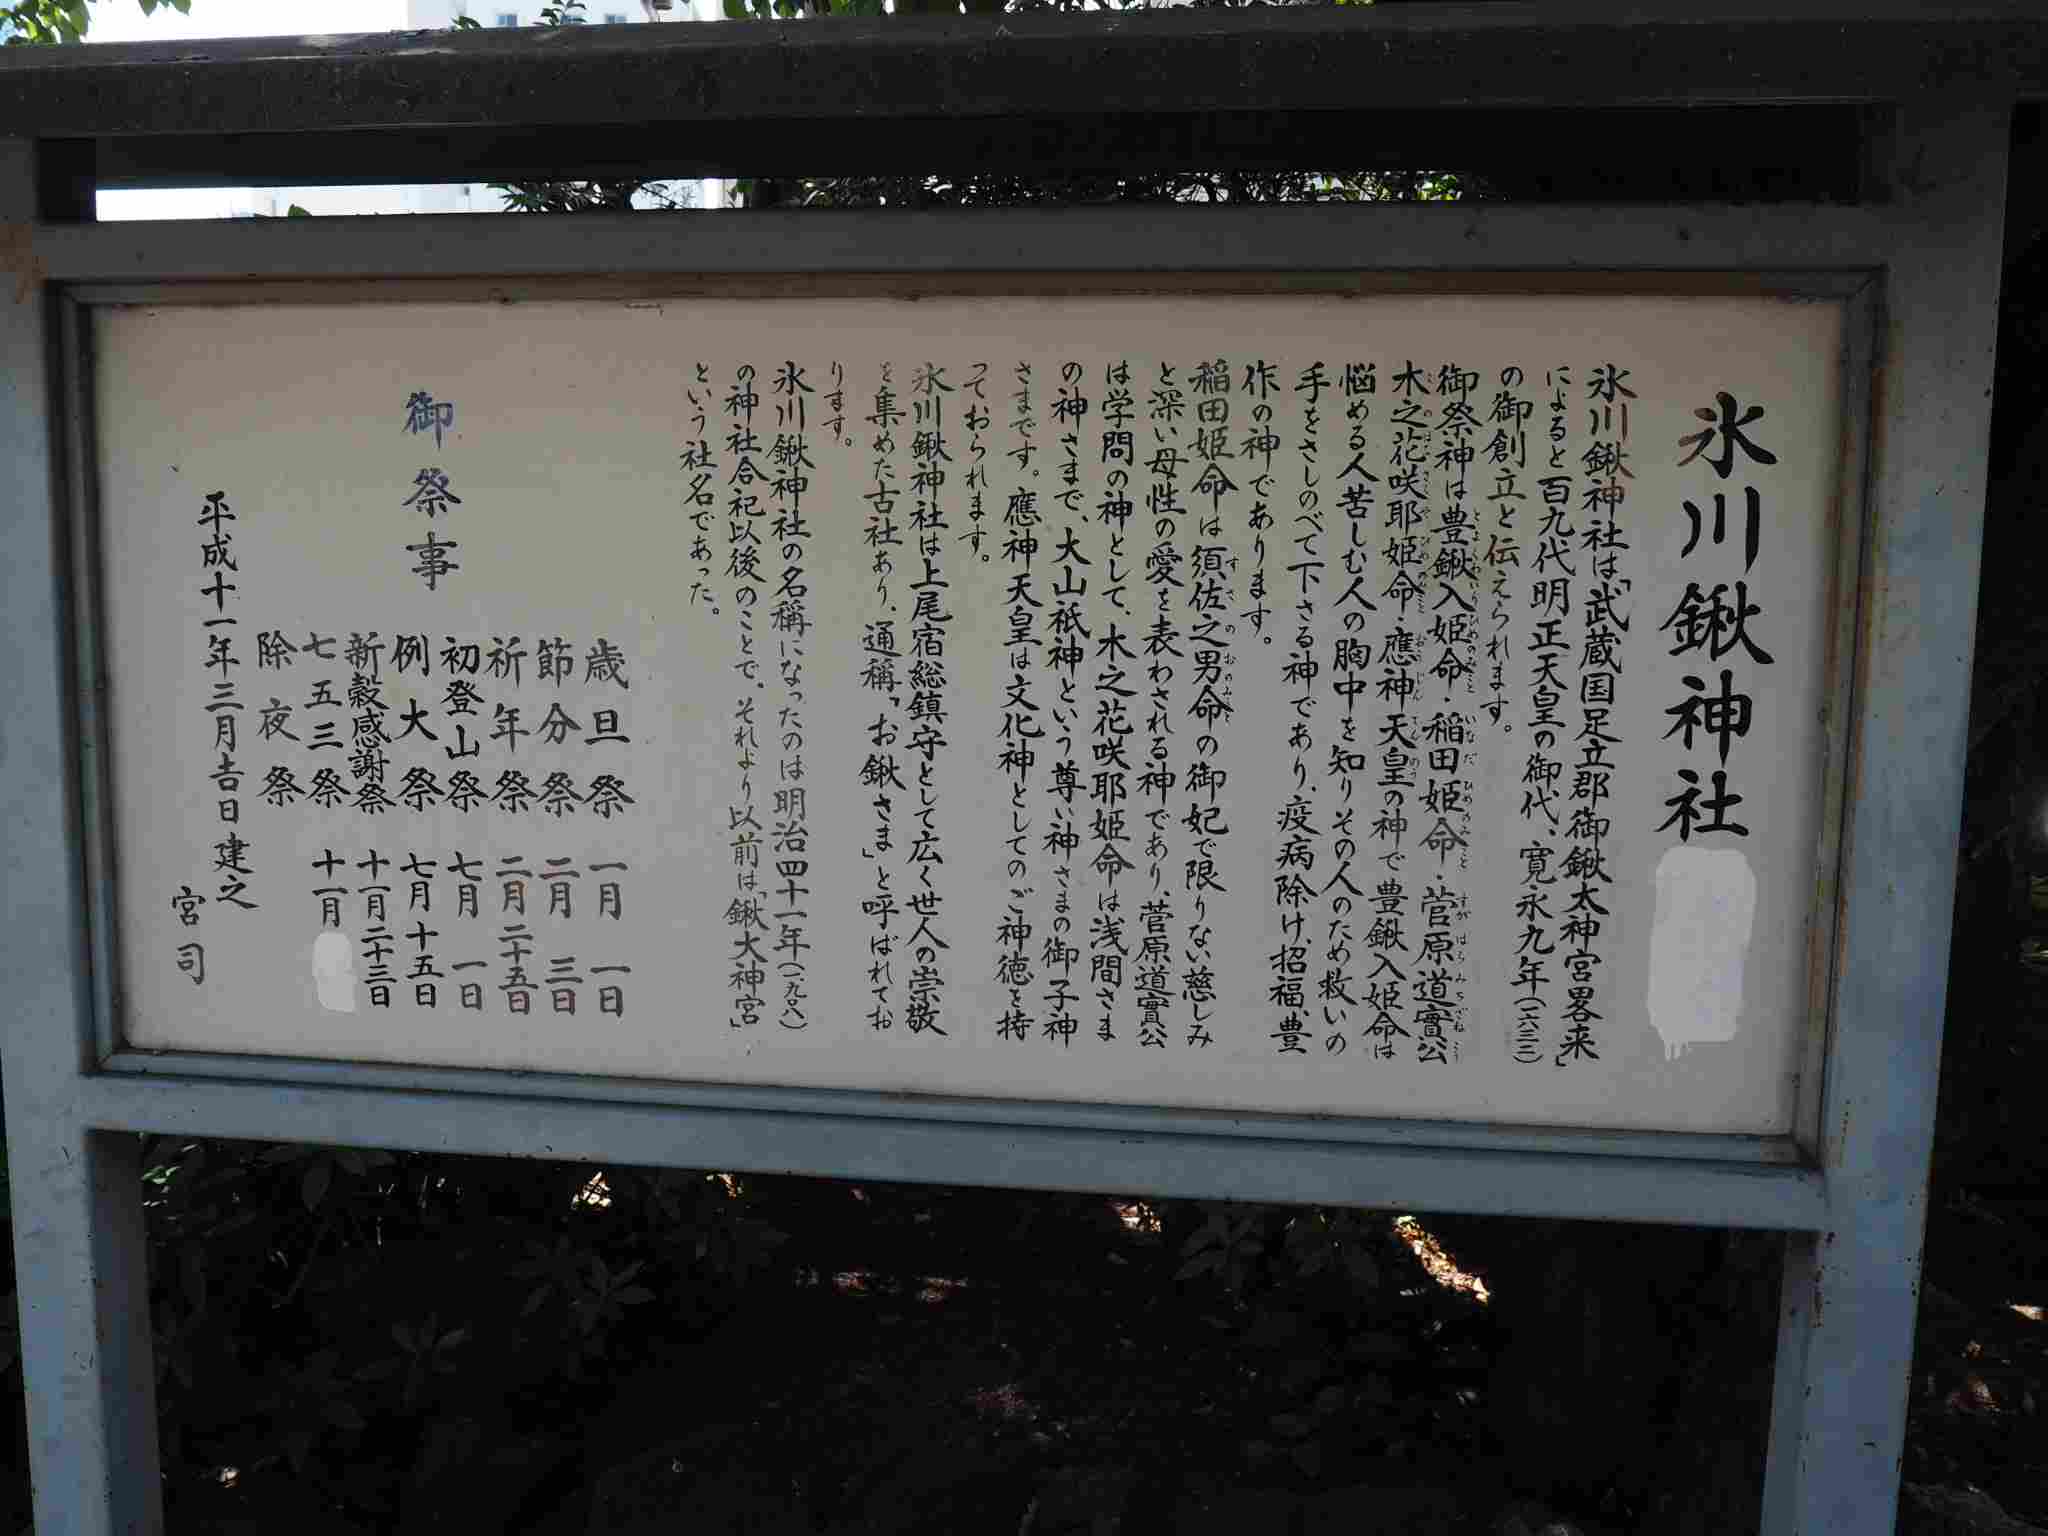 氷川鍬神社
氷川鍬神社は「武蔵国足立郡御鍬太神宮畧来」
によると百九代明正天皇の御代、寛永九年(一六三二)
の御創立と伝えられます。
御祭神は豊鍬入姫命・稲田姫命・菅原道實公
木之花咲耶姫命・應神天皇の神で豊鍬入姫命は
悩める人苦しむ人の胸中を知りその人のため救いの
手をさしのべて下さる神であり、疫病除け、招福、豊
作の神であります。
稲田姫命は須佐之男命の御妃で限りない慈しみ
と深い母性の愛を表わされる神であり、菅原道實公
は学問の神として、木之花咲耶姫命は浅間さま
の神さまで、大山祇神という尊い神さまの御子神
さまです。應神天皇は文化神としてのご神徳を持
っておられます。
氷川鍬神社は上尾宿総鎮守として広く世人の崇敬
を集めた古社あり、通称「お鍬さま」と呼ばれてお
ります。
氷川鍬神社の名称になったのは明治四十一年(一九〇八)
の神社合祀以後のことで、それより以前は「鍬大神宮」
という社名であった。
御祭事
歳旦祭 一月 一日
節分祭 二月 三日
祈年祭 二月二十五日
初登山祭 七月 一日
例大祭 七月十五日
新穀感謝祭 十一月二十三日
七五三祭 十一月
除夜祭
平成十一年三月吉日建之
宮司